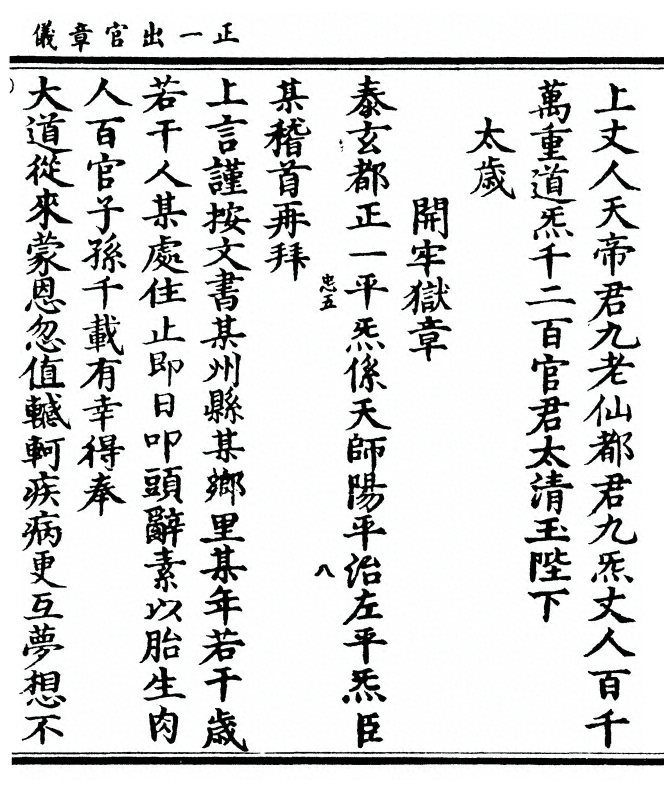 正一出官章儀
上丈人天帝君九老仙都君九炁丈人百千
萬重道炁千二百官君太清玉陛下
太歲
開牢獄章
泰玄都正一平炁係天師陽平治左平炁臣
忠五
八
某稽首再拜
上言謹按文書某州縣某鄉里某年若干歲
若干人某處住止即日叩頭辭素以胎生肉
人百官子孫千載有幸得奉
大道從來蒙恩忽值轗軻疾病更互夢想不